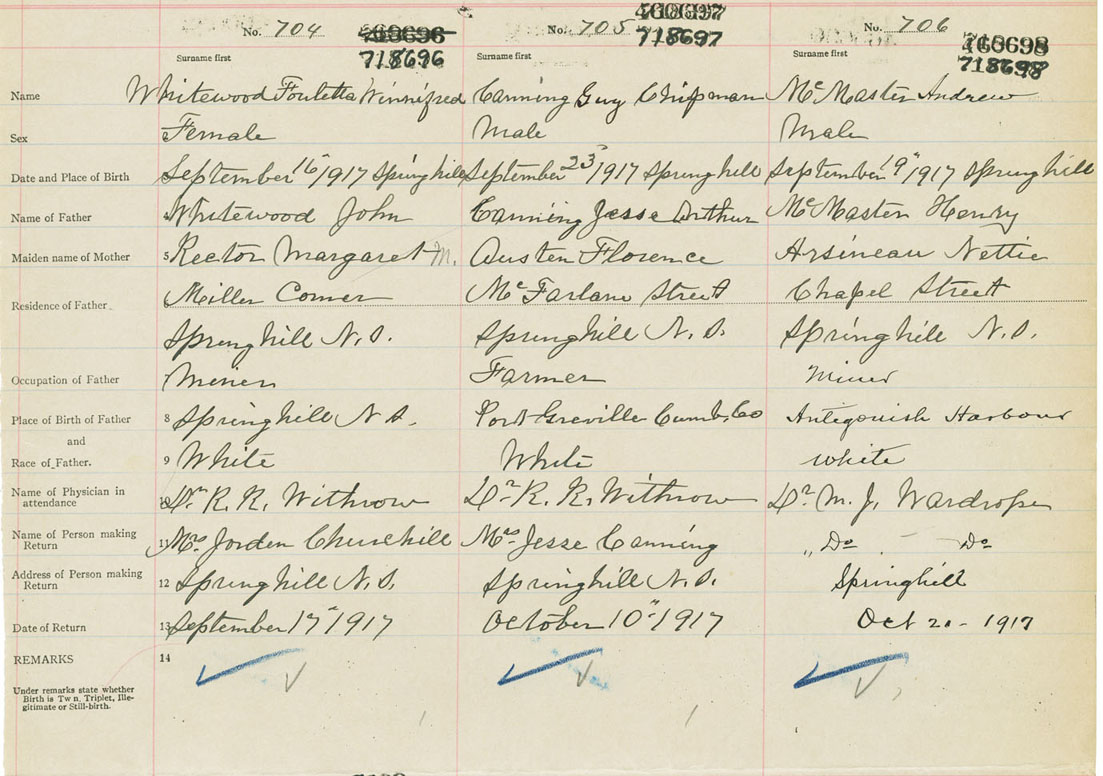 No. 704 No. 705 No. 706
460696 460697 460698
718696 718697 718698
Surname first Surname first Surname first
Name Whitewood Fouletta Winnifred Canning Guy Chipman McMaster Andrew
Sex Female Male Male
Date and Place of Birth September 16"/1917 Springhill September 23"/1917 Springhill September 19"/1917 Springhill
Name of Father Whitewood John Canning Jesse Arthur McMaster Henry
Maiden name of Mother 5 Rector Margaret M. Austen Florence Arsineau Nettie
Residence of Father Miller Corner McFarlane Street Chapel Street
Springhill N.S. Springhill N.S. Springhill N.S.
Occupation of Father Miner Farmer Miner
Place of Birth of Father 8 Springhill N.S. Port Greville Cumb. Co Antigonish Harbour
and
Race of Father. 9 White White White
Name of Physician in
attendance 10 Dr. R. R. Withrow Dr. R. R. Withrow Dr. M. J. Wardrope
Name of Person making
Return 11 Mrs Jorden Churchill Mrs Jesse Canning " Do - Do
Address of Person making
Return 12 Springhill N.S. Springhill N.S. Springhill
Date of Return 13 September 17" 1917 October 10" 1917 Oct 20 - 1917
REMARKS 14
Under remarks state whether
Birth is Twin, Triplet, Ille-
gitimate or Still-birth.